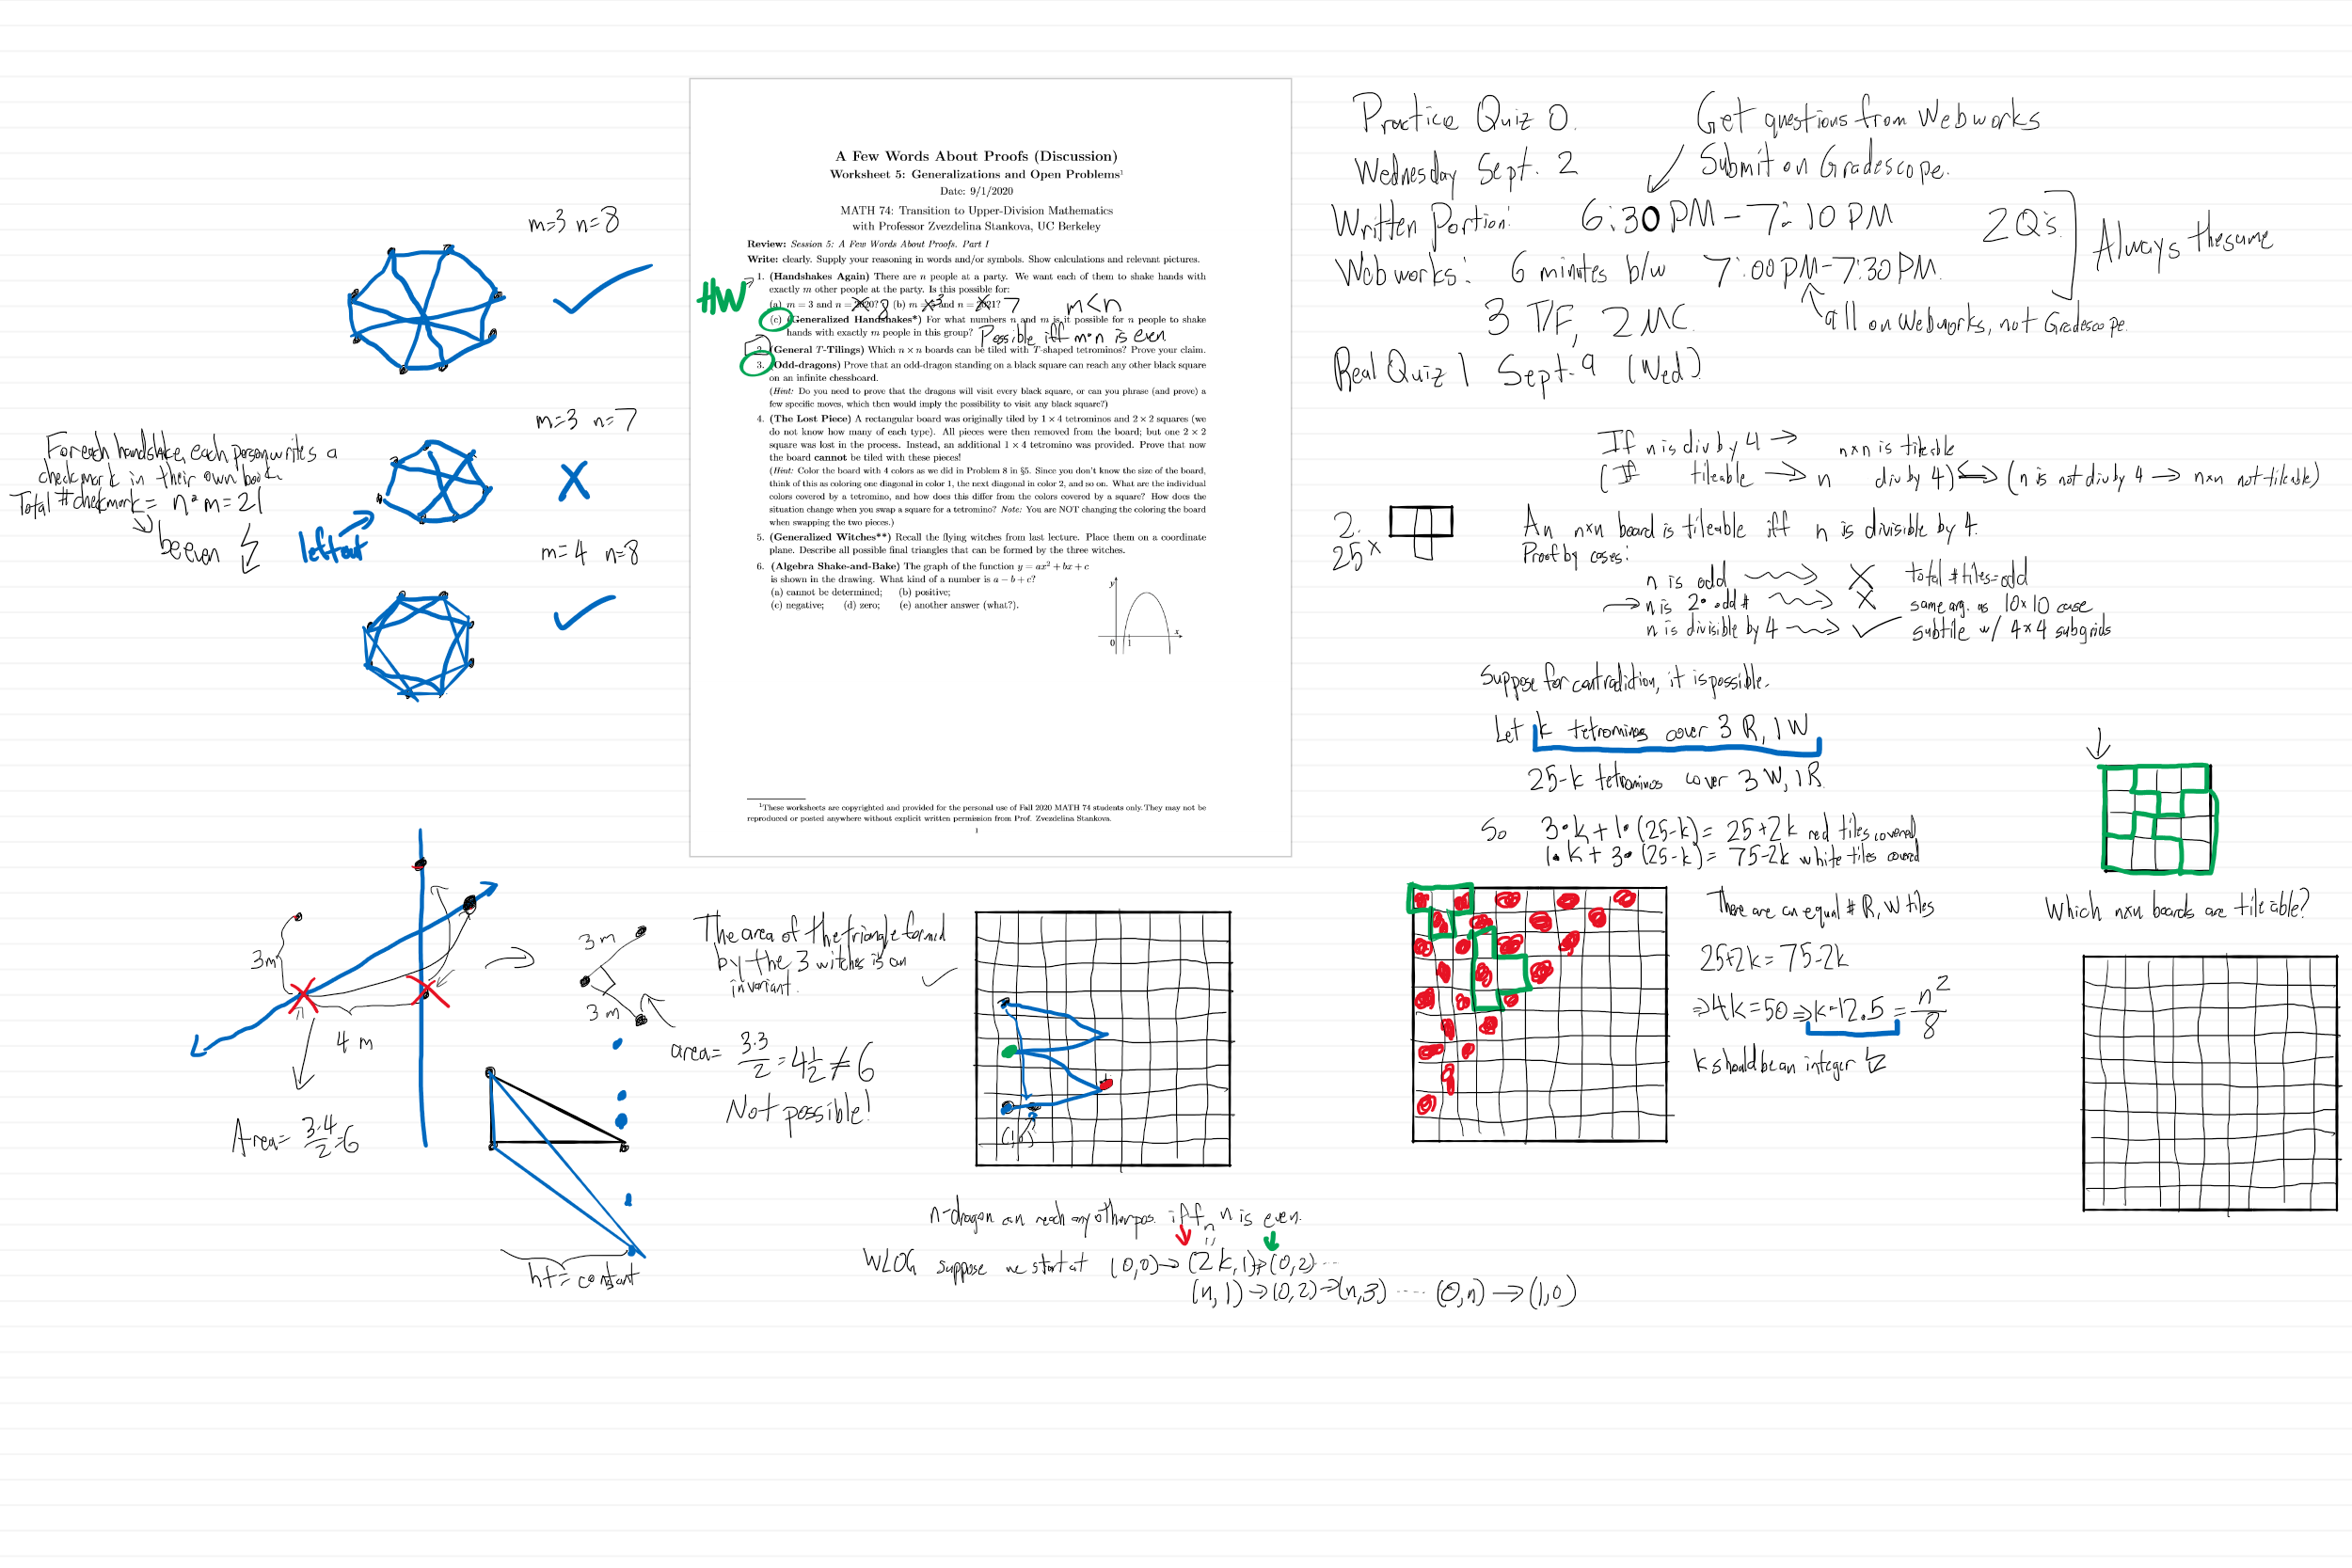 A Few Words About Proofs (Discussion)
Worksheet 5: Generalizations and Open Problems¹
Date: 9/1/2020
MATH 74: Transition to Upper-Division Mathematics
with Professor Zvezdelina Stankova, UC Berkeley
Review: Session 5: A Few Words About Proofs. Part I
Write: clearly. Supply your reasoning in words and/or symbols. Show calculations and relevant pictures.
HW
1. (Handshakes Again) There are n people at a party. We want each of them to shake hands with
exactly m other people at the party. Is this possible for:
(a) m = 3 and n = 2020? 8 (b) m = 3 and n = 2021? 7 m<n
(c) (Generalized Handshakes*) For what numbers n and m is it possible for n people to shake
hands with exactly m people in this group? Possible iff m·n is even
2. (General T-Tilings) Which n × n boards can be tiled with T-shaped tetrominos? Prove your claim.
3. (Odd-dragons) Prove that an odd-dragon standing on a black square can reach any other black square
on an infinite chessboard.
(Hint: Do you need to prove that the dragons will visit every black square, or can you phrase (and prove) a
few specific moves, which then would imply the possibility to visit any black square?)
4. (The Lost Piece) A rectangular board was originally tiled by 1 × 4 tetrominos and 2 × 2 squares (we
do not know how many of each type). All pieces were then removed from the board; but one 2 × 2
square was lost in the process. Instead, an additional 1 × 4 tetromino was provided. Prove that now
the board cannot be tiled with these pieces!
(Hint: Color the board with 4 colors as we did in Problem 8 in §5. Since you don't know the size of the board,
think of this as coloring one diagonal in color 1, the next diagonal in color 2, and so on. What are the individual
colors covered by a tetromino, and how does this differ from the colors covered by a square? How does the
situation change when you swap a square for a tetromino? Note: You are NOT changing the coloring the board
when swapping the two pieces.)
5. (Generalized Witches**) Recall the flying witches from last lecture. Place them on a coordinate
plane. Describe all possible final triangles that can be formed by the three witches.
6. (Algebra Shake-and-Bake) The graph of the function y = ax² + bx + c
is shown in the drawing. What kind of a number is a − b + c?
(a) cannot be determined; (b) positive;
(c) negative; (d) zero; (e) another answer (what?).
y
0 1 x
¹These worksheets are copyrighted and provided for the personal use of Fall 2020 MATH 74 students only. They may not be
reproduced or posted anywhere without explicit written permission from Prof. Zvezdelina Stankova.
1
m=3 n=8
m=3 n=7
For each handshake, each person writes a
checkmark in their own book
Total # checkmark = n·m = 21
be even
left out
m=4 n=8
3m
4 m
Area = 3·4/2 = 6
3 m
3 m
The area of the triangle formed
by the 3 witches is an
invariant.
area = 3·3/2 = 4 1/2 ≠ 6
Not possible!
ht = constant
(1,0)
n-dragon can reach any other pos. iff n is even.
WLOG suppose we start at (0,0) → (2k,1) → (0,2) ...
n
(n,1) → (0,2) → (n,3) .... (0,n) → (1,0)
Practice Quiz 0.
Wednesday Sept. 2
Get questions from Webworks
Submit on Gradescope.
Written Portion: 6:30 PM – 7:10 PM
Webworks: 6 minutes b/w 7:00 PM – 7:30 PM.
2 Q's.
Always the same
3 T/F, 2 MC.
all on Webworks, not Gradescope.
Real Quiz 1 Sept. 9 (Wed)
If n is div by 4 → n×n is tileable
(If tileable → n div by 4) ⟺ (n is not div by 4 → n×n not tileable)
2.
25 ×
An n×n board is tileable iff n is divisible by 4.
Proof by cases:
n is odd ⟿ X total # tiles = odd
→ n is 2·odd # ⟿ X same arg. as 10×10 case
n is divisible by 4 ⟿ ✓ subtile w/ 4×4 subgrids
Suppose for contradition, it is possible.
Let k tetrominos cover 3 R, 1 W
25-k tetrominos cover 3 W, 1 R.
So 3·k + 1·(25-k) = 25+2k red tiles covered
1·k + 3·(25-k) = 75-2k white tiles covered
There are an equal # R, W tiles
25+2k = 75-2k
⇒ 4k = 50 ⇒ k=12.5 = n²/8
k should be an integer
Which n×n boards are tileable?